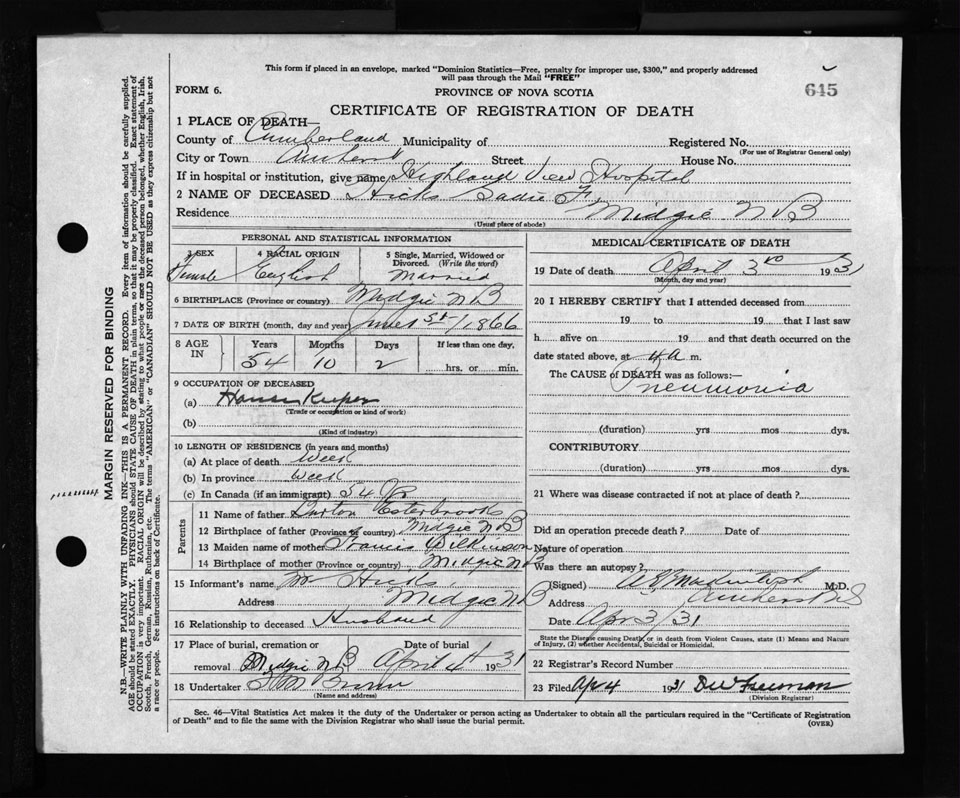 This form if placed in an envelope, marked "Dominion Statistics—Free, penalty for improper use, $300," and properly addressed
will pass through the Mail "FREE"
645
FORM 6.
PROVINCE OF NOVA SCOTIA
CERTIFICATE OF REGISTRATION OF DEATH
1 PLACE OF DEATH—
County of Cumberland Municipality of Registered No.
(For use of Registrar General only)
City or Town Amherst Street House No.
If in hospital or institution, give name Highland View Hospital
2 NAME OF DECEASED Hicks Sadie F.
Residence Midgic N B
(Usual place of abode)
PERSONAL AND STATISTICAL INFORMATION
3 SEX 4 RACIAL ORIGIN 5 Single, Married, Widowed or
Divorced. (Write the word)
Female English Married
6 BIRTHPLACE (Province or country) Midgic N B
7 DATE OF BIRTH (month, day and year) June 1st/1866
8 AGE IN Years Months Days If less than one day,
54 10 2 hrs. or min.
9 OCCUPATION OF DECEASED
(a) House Keeper
(Trade or occupation or kind of work)
(b)
(Kind of industry)
10 LENGTH OF RESIDENCE (in years and months)
(a) At place of death Week
(b) In province Week
(c) In Canada (if an immigrant) 54 yr
Parents
11 Name of father Burton Esterbrooks
12 Birthplace of father (Province or country) Midgic N B
13 Maiden name of mother Francis Wilkinson
14 Birthplace of mother (Province or country) Midgic N B
15 Informant's name Hicks
Address Midgic N B
16 Relationship to deceased Husband
17 Place of burial, cremation or Date of burial
removal Midgic N B April 4th 1931
18 Undertaker Brown
(Name and address)
MEDICAL CERTIFICATE OF DEATH
19 Date of death April 3rd 1931
(Month, day and year)
20 I HEREBY CERTIFY that I attended deceased from
19 to 19 that I last saw
h alive on 19 and that death occurred on the
date stated above, at 4 A m.
The CAUSE of DEATH was as follows:—
Pneumonia
(duration) yrs mos dys.
CONTRIBUTORY
(duration) yrs mos dys.
21 Where was disease contracted if not at place of death?
Did an operation precede death? Date of
Nature of operation
Was there an autopsy?
(Signed) Mackintosh M.D.
Address Amherst N S
Date Apr 3/31
State the Disease causing Death, or in death from Violent Causes, state (1) Means and Nature
of Injury, (2) whether Accidental, Suicidal or Homicidal.
22 Registrar's Record Number
23 Filed Apr 4 1931 Freeman
(Division Registrar)
Sec. 46—Vital Statistics Act makes it the duty of the Undertaker or person acting as Undertaker to obtain all the particulars required in the "Certificate of Registration
of Death" and to file the same with the Division Registrar who shall issue the burial permit.
(OVER)
MARGIN RESERVED FOR BINDING
N.B.—WRITE PLAINLY WITH UNFADING INK—THIS IS A PERMANENT RECORD. Every item of information should be carefully supplied.
AGE should be stated EXACTLY. PHYSICIANS should STATE CAUSE OF DEATH in plain terms, so that it may be properly classified. Exact statement of
OCCUPATION is very important. RACIAL ORIGIN will be described by stating to what people or race the deceased person belonged, whether English, Irish,
Scotch, French, German, Russian, Ruthenian, etc. The terms "AMERICAN" or "CANADIAN" SHOULD NOT BE USED as they express citizenship but not
a race or people. See instructions on back of Certificate.